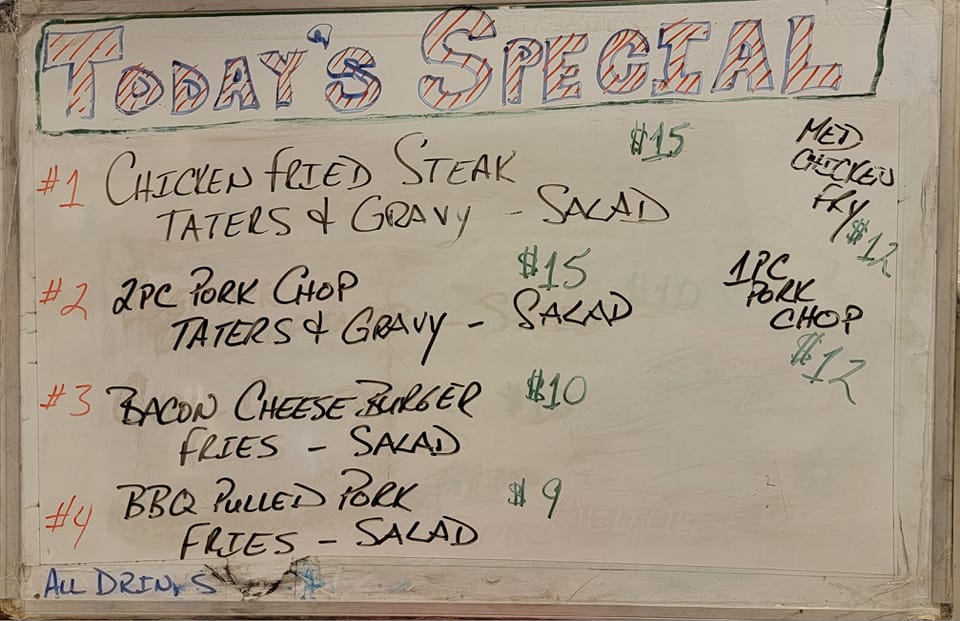 TODAY'S SPECIAL
#1 CHICKEN FRIED STEAK $15
TATERS & GRAVY - SALAD
MED
CHICKEN
FRY
$12
#2 2PC PORK CHOP $15
TATERS & GRAVY - SALAD
1PC
PORK
CHOP
$12
#3 BACON CHEESE BURGER $10
FRIES - SALAD
#4 BBQ PULLED PORK $9
FRIES - SALAD
ALL